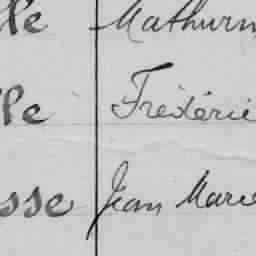 lle Mathurin
lle Frédéric
sse Jean Marie